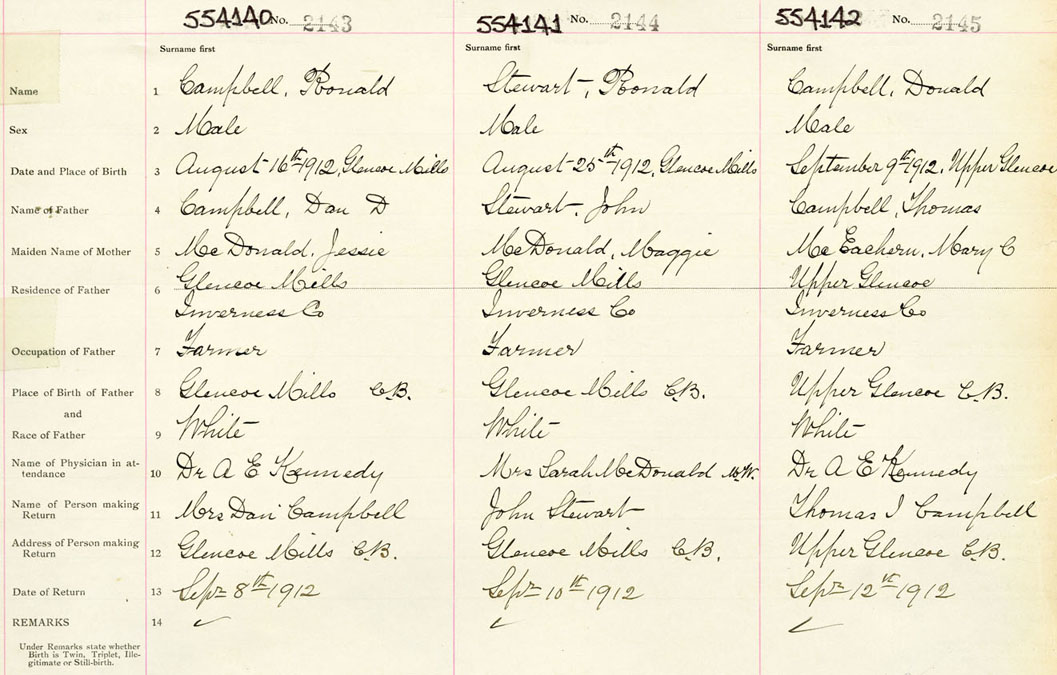 554140 No. 2143 554141 No. 2144 554142 No. 2145
Surname first Surname first Surname first
Name 1 Campbell, Ronald Stewart, Ronald Campbell, Donald
Sex 2 Male Male Male
Date and Place of Birth 3 August 16th 1912, Glencoe Mills August 25th 1912, Glencoe Mills September 9th 1912, Upper Glencoe
Name of Father 4 Campbell, Dan D Stewart, John Campbell, Thomas
Maiden Name of Mother 5 McDonald, Jessie McDonald, Maggie McEachern, Mary C
Residence of Father 6 Glencoe Mills Glencoe Mills Upper Glencoe
Inverness Co Inverness Co Inverness Co
Occupation of Father 7 Farmer Farmer Farmer
Place of Birth of Father 8 Glencoe Mills C.B. Glencoe Mills C.B. Upper Glencoe C.B.
and
Race of Father 9 White White White
Name of Physician in at-
tendance 10 Dr A E Kennedy Mrs Sarah McDonald M.W. Dr A E Kennedy
Name of Person making
Return 11 Mrs Dan Campbell John Stewart Thomas J Campbell
Address of Person making
Return 12 Glencoe Mills C.B. Glencoe Mills C.B. Upper Glencoe C.B.
Date of Return 13 Sept 8th 1912 Sept 10th 1912 Sept 12th 1912
REMARKS 14
Under Remarks state whether
Birth is Twin, Triplet, Ille-
gitimate or Still-birth.